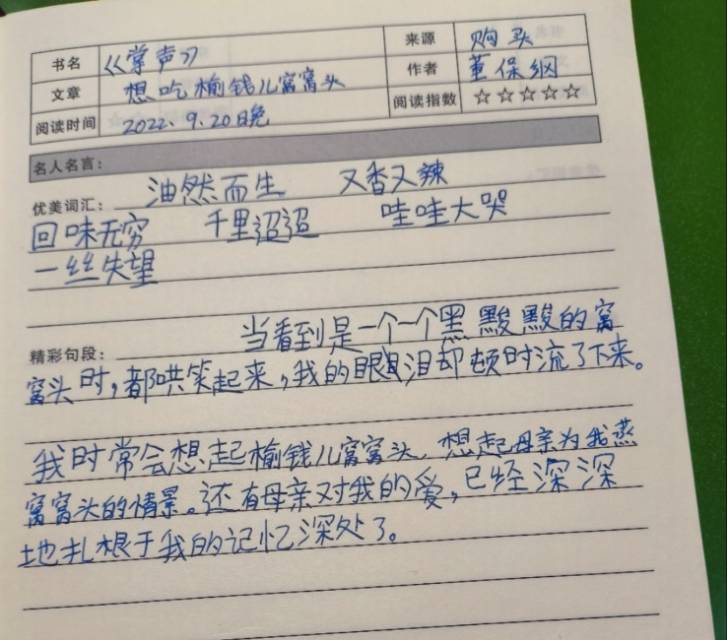 书名 《掌声》 来源 购买
文章 想吃榆钱儿窝窝头 作者 董保纲
阅读时间 2022、9.20日晚 阅读指数 ☆☆☆☆☆
名人名言:
优美词汇: 油然而生 又香又辣
回味无穷 千里迢迢 哇哇大哭
一丝失望
精彩句段: 当看到是一个一个黑黢黢的窝
窝头时,都哄笑起来,我的眼泪却顿时流了下来。
我时常会想起榆钱儿窝窝头,想起母亲为我蒸
窝窝头的情景。还有母亲对我的爱,已经深深
地扎根于我的记忆深处了。